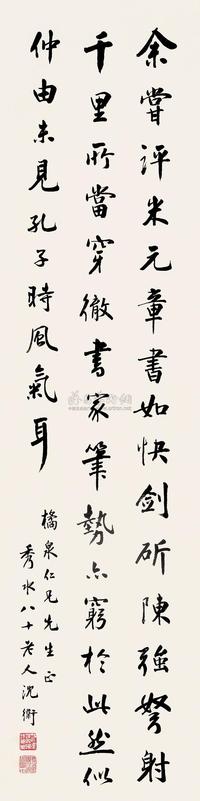 余嘗評米元章書如快劍斫陳強弩射
千里所當穿徹書家筆勢亦窮於此然似
仲由未見孔子時風氣耳
橘泉仁兄先生正
秀水八十老人沈衛